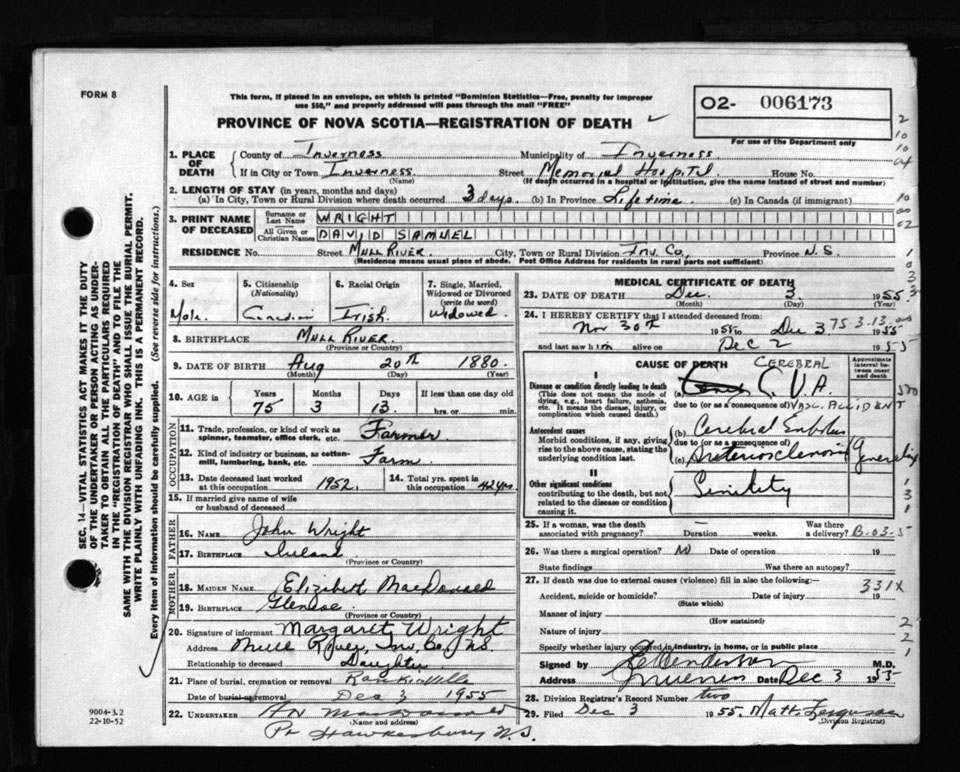 FORM 8
This form, if placed in an envelope, on which is printed "Dominion Statistics—Free, penalty for improper
use $50," and properly addressed will pass through the mail "FREE"
PROVINCE OF NOVA SCOTIA—REGISTRATION OF DEATH
O2- 006173
For use of the Department only
1. PLACE OF DEATH { County of Inverness Municipality of Inverness
If in City or Town Inverness Street Memorial Hospital House No.
(Name) (If death occurred in a hospital or institution, give the name instead of street and number)
2. LENGTH OF STAY (in years, months and days)
(a) In City, Town or Rural Division where death occurred 3 days. (b) In Province Lifetime. (c) In Canada (if immigrant)
3. PRINT NAME OF DECEASED { Surname or Last Name WRIGHT
All Given or Christian Names DAVID SAMUEL
RESIDENCE No. Street MULL RIVER. City, Town or Rural Division Inv. Co., Province N.S.
(Residence means usual place of abode. Post Office Address for residents in rural parts not sufficient)
4. Sex Male
5. Citizenship (Nationality) Canadian
6. Racial Origin Irish.
7. Single, Married, Widowed or Divorced (write the word) Widowed
8. BIRTHPLACE MULL RIVER.
(Province or Country)
9. DATE OF BIRTH Aug 20th 1880.
(Month) (Day) (Year)
10. AGE in Years 75 Months 3 Days 13. If less than one day old
hrs. or min.
OCCUPATION
11. Trade, profession, or kind of work as spinner, teamster, office clerk, etc. Farmer.
12. Kind of industry or business, as cotton-mill, lumbering, bank, etc. Farm.
13. Date deceased last worked at this occupation 1952. 14. Total yrs. spent in this occupation 42 yrs.
15. If married give name of wife or husband of deceased
FATHER
16. NAME John Wright
17. BIRTHPLACE Ireland
(Province or Country)
MOTHER
18. MAIDEN NAME Elizabeth MacDonald
19. BIRTHPLACE
(Province or Country)
20. Signature of informant Margaret Wright
Address Mull River, Inv. Co., N.S.
Relationship to deceased Daughter
21. Place of burial, cremation or removal Rankinville
Date of burial or removal Dec 3 1955
22. UNDERTAKER MacDonald
(Name and address)
Pt Hawkesbury N.S.
MEDICAL CERTIFICATE OF DEATH
23. DATE OF DEATH Dec. 3 1955
(Month) (Day) (Year)
24. I HEREBY CERTIFY that I attended deceased from:
Nov 30th 1955 to Dec 3 1955
75.3.13.
and last saw him alive on Dec 2 1955
CAUSE OF DEATH CEREBRAL
Approximate interval between onset and death
I
Disease or condition directly leading to death
(This does not mean the mode of dying, e.g., heart failure, asthenia, etc. It means the disease, injury, or complication which caused death.)
(a) C.V.A.
due to (or as a consequence of) VASC. ACCIDENT
Antecedent causes
Morbid conditions, if any, giving rise to the above cause, stating the underlying condition last.
(b) Cerebral Embolus
due to (or as a consequence of)
(c) Arteriosclerosis
II
Other significant conditions contributing to the death, but not related to the disease or condition causing it
Senility
25. If a woman, was the death associated with pregnancy? — Duration weeks. Was there a delivery?
B.03.5
26. Was there a surgical operation? No Date of operation 19
State findings Was there an autopsy?
27. If death was due to external causes (violence) fill in also the following:—
331X
Accident, suicide or homicide? Date of injury 19
(State which)
Manner of injury
(How sustained)
Nature of injury
Specify whether injury occurred in industry, in home, or in public place
Signed by M.D.
Address Inverness Date Dec 3 1955
28. Division Registrar's Record Number two
29. Filed Dec 3 1955. Matt. Ferguson
(Division Registrar)
SEC. 14—VITAL STATISTICS ACT MAKES IT THE DUTY
OF THE UNDERTAKER OR PERSON ACTING AS UNDER-
TAKER TO OBTAIN ALL THE PARTICULARS REQUIRED
IN THE "REGISTRATION OF DEATH" AND TO FILE THE
SAME WITH THE DIVISION REGISTRAR WHO SHALL ISSUE THE BURIAL PERMIT.
WRITE PLAINLY WITH UNFADING INK. THIS IS A PERMANENT RECORD.
Every item of information should be carefully supplied. (See reverse side for instructions.)
9004-3.2
22-10-52